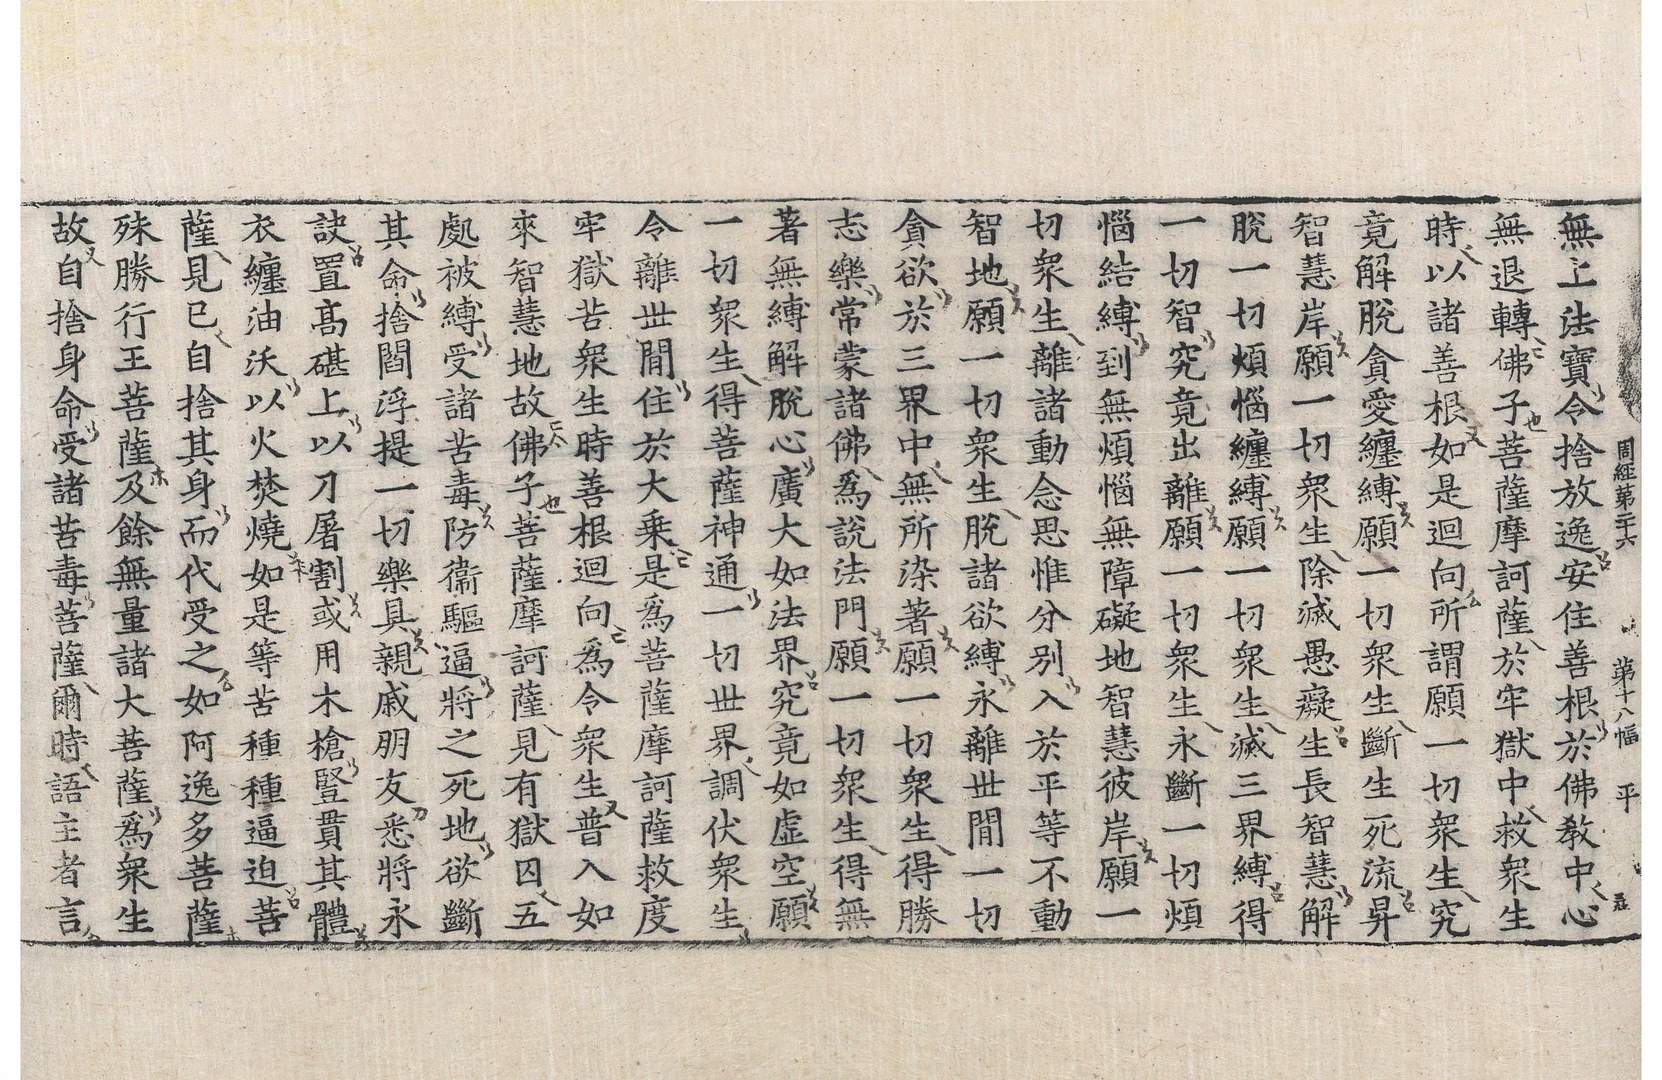 周經第二十六　第十八幅　平
無上法寶令捨放逸安住善根於佛教中心
無退轉佛子菩薩摩訶薩於牢獄中救衆生
時以諸善根如是迴向所謂願一切衆生究
竟解脫貪愛纏縛願一切衆生斷生死流昇
智慧岸願一切衆生除滅愚癡生長智慧解
脫一切煩惱纏縛願一切衆生滅三界縛得
一切智究竟出離願一切衆生永斷一切煩
惱結縛到無煩惱無障礙地智慧彼岸願一
切衆生離諸動念思惟分別入於平等不動
智地願一切衆生脫諸欲縛永離世間一切
貪欲於三界中無所染著願一切衆生得勝
志樂常蒙諸佛爲說法門願一切衆生得無
著無縛解脫心廣大如法界究竟如虛空願
一切衆生得菩薩神通一切世界調伏衆生
令離世間住於大乗是爲菩薩摩訶薩救度
牢獄苦衆生時善根迴向爲令衆生普入如
來智慧地故佛子菩薩摩訶薩見有獄囚五
處被縛受諸苦毒防衞驅逼將之死地欲斷
其命捨閻浮提一切樂具親戚朋友悉將永
訣置高碪上以刀屠割或用木槍豎貫其體
衣纏油沃以火焚燒如是等苦種種逼迫菩
薩見已自捨其身而代受之如阿逸多菩薩
殊勝行王菩薩及餘無量諸大菩薩爲衆生
故自捨身命受諸苦毒菩薩爾時語主者言